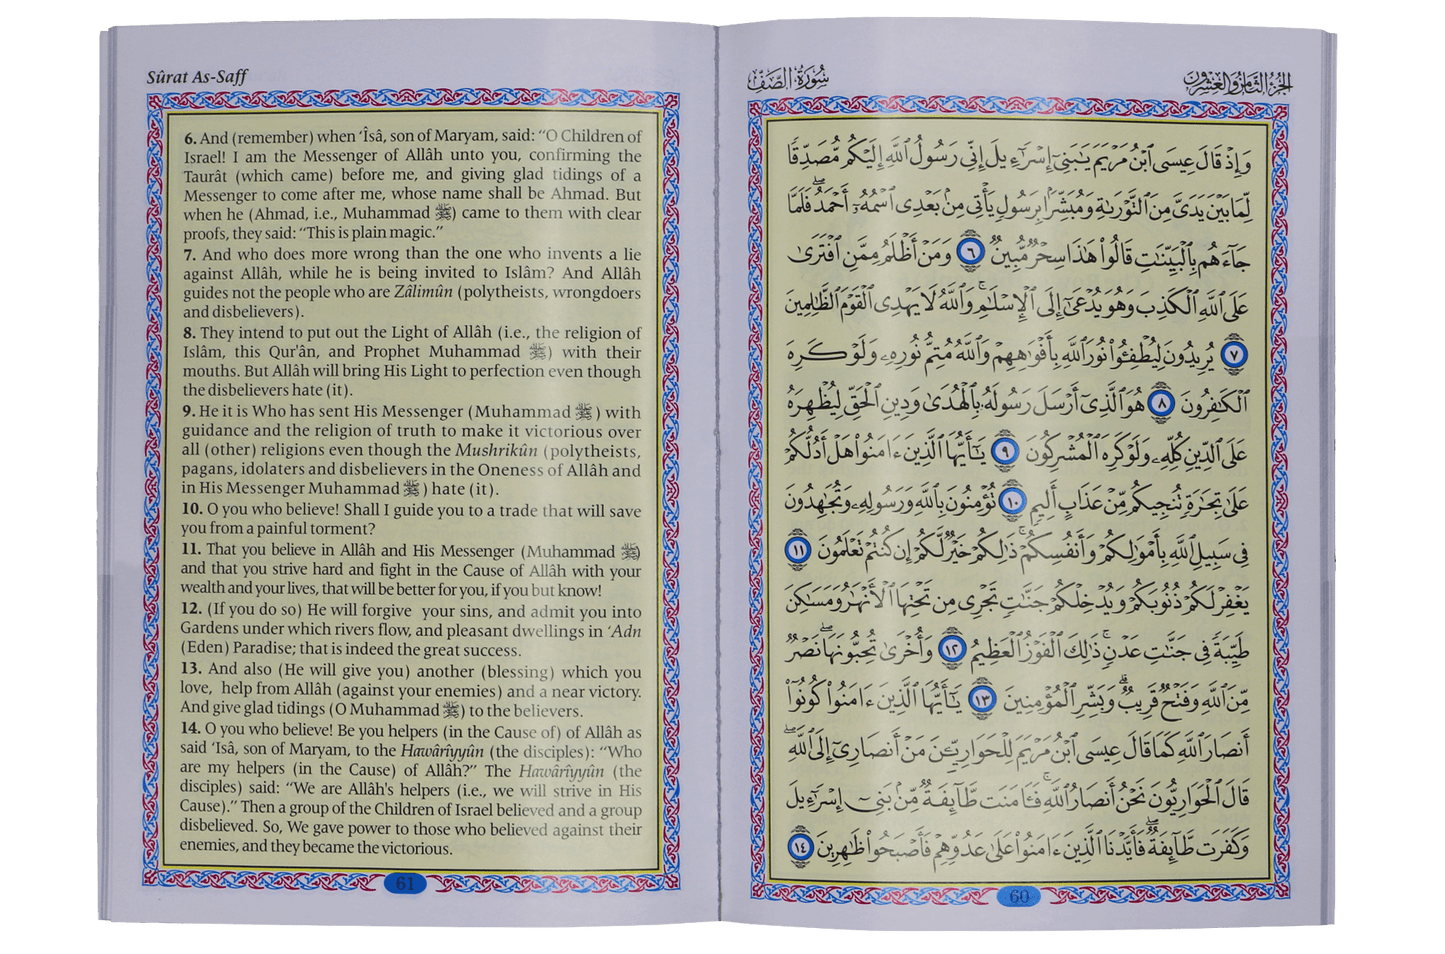 Sûrat As-Saff
6. And (remember) when ‘Îsâ, son of Maryam, said: “O Children of
Israel! I am the Messenger of Allâh unto you, confirming the
Taurât (which came) before me, and giving glad tidings of a
Messenger to come after me, whose name shall be Ahmad. But
when he (Ahmad, i.e., Muhammad ﷺ) came to them with clear
proofs, they said: “This is plain magic.”
7. And who does more wrong than the one who invents a lie
against Allâh, while he is being invited to Islâm? And Allâh
guides not the people who are Zâlimûn (polytheists, wrongdoers
and disbelievers).
8. They intend to put out the Light of Allâh (i.e., the religion of
Islâm, this Qur'ân, and Prophet Muhammad ﷺ) with their
mouths. But Allâh will bring His Light to perfection even though
the disbelievers hate (it).
9. He it is Who has sent His Messenger (Muhammad ﷺ) with
guidance and the religion of truth to make it victorious over
all (other) religions even though the Mushrikûn (polytheists,
pagans, idolaters and disbelievers in the Oneness of Allâh and
in His Messenger Muhammad ﷺ) hate (it).
10. O you who believe! Shall I guide you to a trade that will save
you from a painful torment?
11. That you believe in Allâh and His Messenger (Muhammad ﷺ)
and that you strive hard and fight in the Cause of Allâh with your
wealth and your lives, that will be better for you, if you but know!
12. (If you do so) He will forgive your sins, and admit you into
Gardens under which rivers flow, and pleasant dwellings in ‘Adn
(Eden) Paradise; that is indeed the great success.
13. And also (He will give you) another (blessing) which you
love, help from Allâh (against your enemies) and a near victory.
And give glad tidings (O Muhammad ﷺ) to the believers.
14. O you who believe! Be you helpers (in the Cause of) of Allâh as
said ‘Isâ, son of Maryam, to the Hawâriyyûn (the disciples): “Who
are my helpers (in the Cause) of Allâh?” The Hawâriyyûn (the
disciples) said: “We are Allâh's helpers (i.e., we will strive in His
Cause).” Then a group of the Children of Israel believed and a group
disbelieved. So, We gave power to those who believed against their
enemies, and they became the victorious.
61
الجزء الثامن والعشرون
سُورَةُ الصَّفِّ
وَإِذْ قَالَ عِيسَى ٱبْنُ مَرْيَمَ يَٰبَنِىٓ إِسْرَٰٓءِيلَ إِنِّى رَسُولُ ٱللَّهِ إِلَيْكُم مُّصَدِّقًا
لِّمَا بَيْنَ يَدَىَّ مِنَ ٱلتَّوْرَىٰةِ وَمُبَشِّرًۢا بِرَسُولٍ يَأْتِى مِنۢ بَعْدِى ٱسْمُهُۥٓ أَحْمَدُ ۖ فَلَمَّا
جَآءَهُم بِٱلْبَيِّنَٰتِ قَالُوا۟ هَٰذَا سِحْرٌ مُّبِينٌ ٦ وَمَنْ أَظْلَمُ مِمَّنِ ٱفْتَرَىٰ
عَلَى ٱللَّهِ ٱلْكَذِبَ وَهُوَ يُدْعَىٰٓ إِلَى ٱلْإِسْلَٰمِ ۚ وَٱللَّهُ لَا يَهْدِى ٱلْقَوْمَ ٱلظَّٰلِمِينَ
٧ يُرِيدُونَ لِيُطْفِـُٔوا۟ نُورَ ٱللَّهِ بِأَفْوَٰهِهِمْ وَٱللَّهُ مُتِمُّ نُورِهِۦ وَلَوْ كَرِهَ
ٱلْكَٰفِرُونَ ٨ هُوَ ٱلَّذِىٓ أَرْسَلَ رَسُولَهُۥ بِٱلْهُدَىٰ وَدِينِ ٱلْحَقِّ لِيُظْهِرَهُۥ
عَلَى ٱلدِّينِ كُلِّهِۦ وَلَوْ كَرِهَ ٱلْمُشْرِكُونَ ٩ يَٰٓأَيُّهَا ٱلَّذِينَ ءَامَنُوا۟ هَلْ أَدُلُّكُمْ
عَلَىٰ تِجَٰرَةٍ تُنجِيكُم مِّنْ عَذَابٍ أَلِيمٍ ١٠ تُؤْمِنُونَ بِٱللَّهِ وَرَسُولِهِۦ وَتُجَٰهِدُونَ
فِى سَبِيلِ ٱللَّهِ بِأَمْوَٰلِكُمْ وَأَنفُسِكُمْ ۚ ذَٰلِكُمْ خَيْرٌ لَّكُمْ إِن كُنتُمْ تَعْلَمُونَ ١١
يَغْفِرْ لَكُمْ ذُنُوبَكُمْ وَيُدْخِلْكُمْ جَنَّٰتٍ تَجْرِى مِن تَحْتِهَا ٱلْأَنْهَٰرُ وَمَسَٰكِنَ
طَيِّبَةً فِى جَنَّٰتِ عَدْنٍ ۚ ذَٰلِكَ ٱلْفَوْزُ ٱلْعَظِيمُ ١٢ وَأُخْرَىٰ تُحِبُّونَهَا ۖ نَصْرٌ
مِّنَ ٱللَّهِ وَفَتْحٌ قَرِيبٌ ۗ وَبَشِّرِ ٱلْمُؤْمِنِينَ ١٣ يَٰٓأَيُّهَا ٱلَّذِينَ ءَامَنُوا۟ كُونُوٓا۟
أَنصَارَ ٱللَّهِ كَمَا قَالَ عِيسَى ٱبْنُ مَرْيَمَ لِلْحَوَارِيِّـۧنَ مَنْ أَنصَارِىٓ إِلَى ٱللَّهِ ۖ
قَالَ ٱلْحَوَارِيُّونَ نَحْنُ أَنصَارُ ٱللَّهِ ۖ فَـَٔامَنَت طَّآئِفَةٌ مِّنۢ بَنِىٓ إِسْرَٰٓءِيلَ
وَكَفَرَت طَّآئِفَةٌ ۖ فَأَيَّدْنَا ٱلَّذِينَ ءَامَنُوا۟ عَلَىٰ عَدُوِّهِمْ فَأَصْبَحُوا۟ ظَٰهِرِينَ ١٤
60